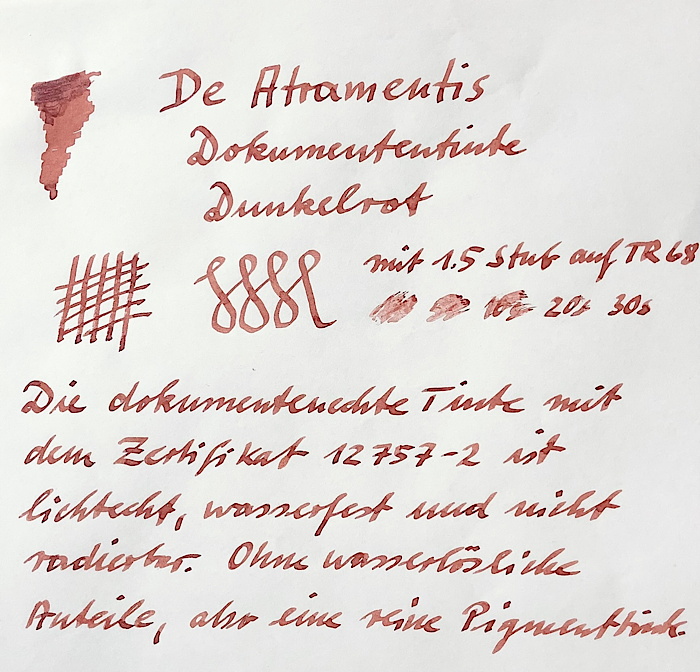 De Atramentis
Dokumententinte
Dunkelrot
mit 1.5 Stub auf TR68
10s 20s 30s
Die dokumentenechte Tinte mit
dem Zertifikat 12757-2 ist
lichtecht, wasserfest und nicht
radierbar. Ohne wasserlösliche
Anteile, also eine reine Pigmenttinte.